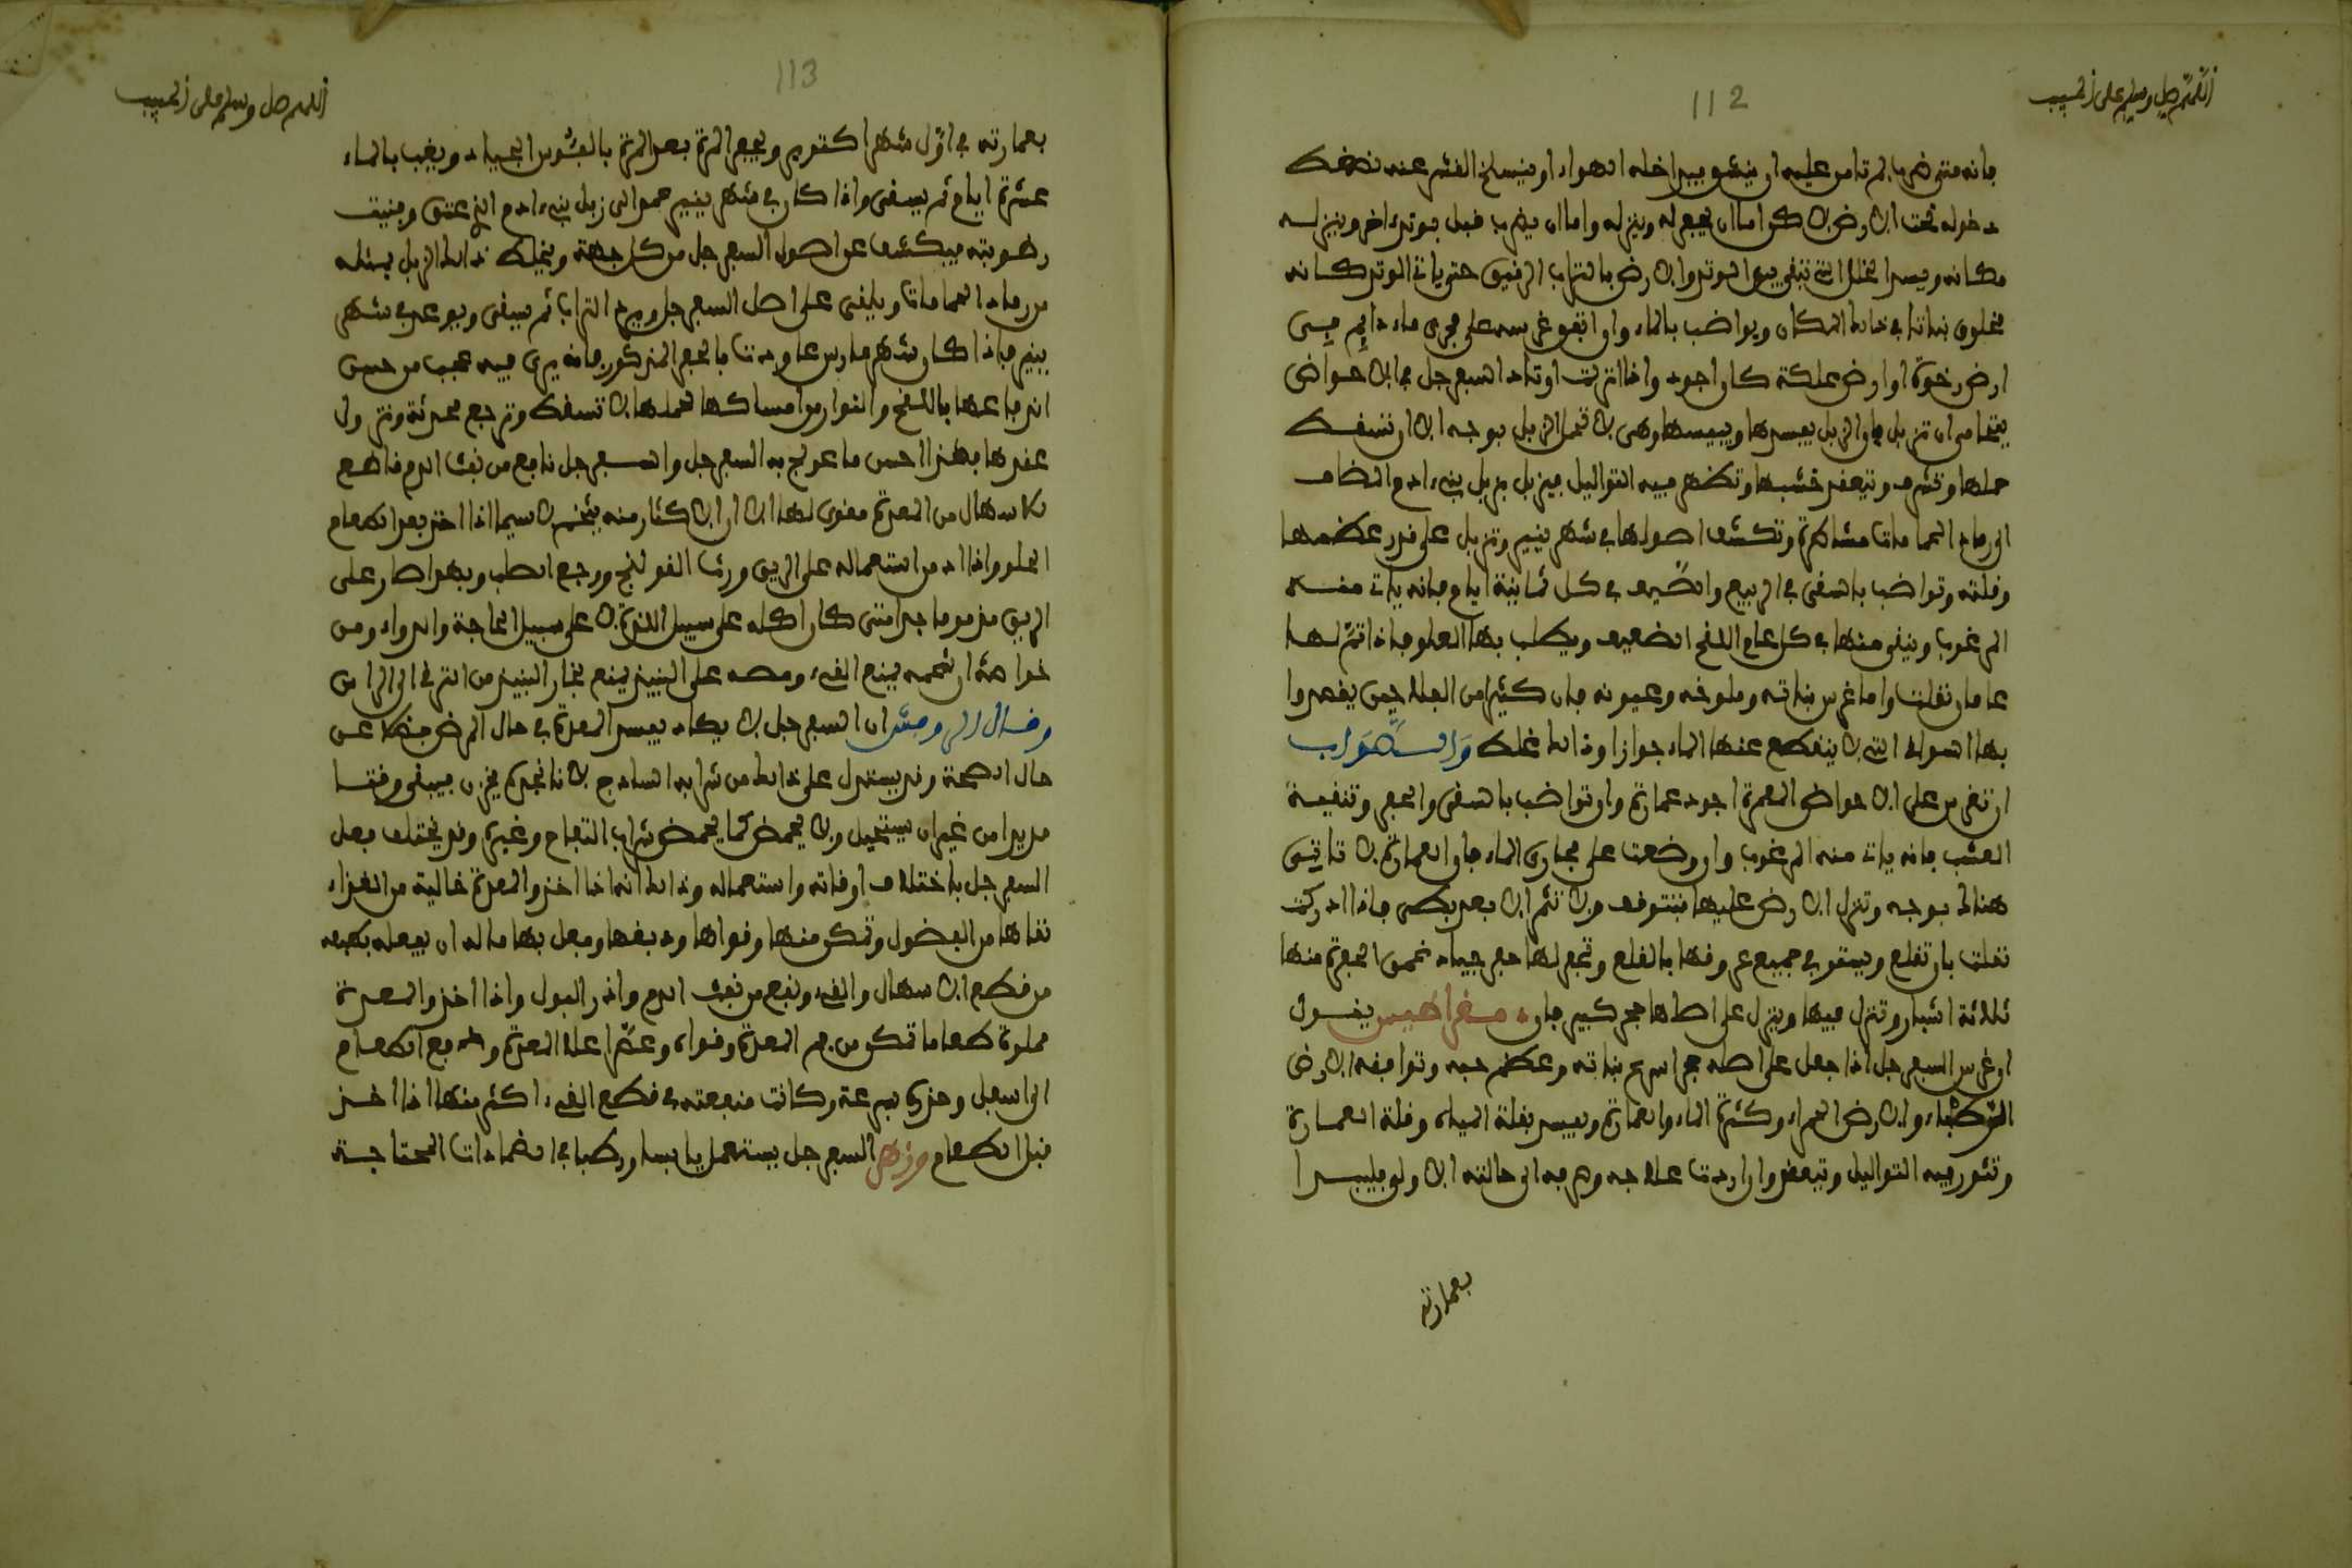 اللهم صل وسلم على الحبيب
112
فانه متى ضرب لم تامن عليه ان ينشو فيداخله الهواء او ينسلخ القشر عنه نصفك
دخوله تحت الارض لاكن اما ان يحفر له وينزله واما ان يضرب قبل بوتد اخر وينزله
مكانه ويسد الخلل التي تبقى بين الوتد والارض بالتراب الرقيق حتى ياتي الوتد كانه
مخلوق نباتا في ذالك المكان ويواضب بالماء وان اتفق غرسه على مجرى ماء دايم في
ارض رخوة او ارض علكة كان اجود واذا انزلت اوتاد السفرجل في الاحواض
يتحامى ان تزبل فان الزبل يفسدها وييبسها وهي لا تحمل الزبل بوجه الا ان تسقط
حملها وتشرف ويتعقد خشبها وتظهر فيه التواليل فيزبل بزبل بني ادم المضاف
الى رماد الحمامات مشاطرة وتكشف اصولها في شهر ينير وتزبل على قدر عظمها
وقلته وتواضب بالسقي في الربيع والصيف في كل ثمانية ايام فانه ياتى منه
المرغوب وينقى منها في كل عام اللقح الضعيف ويطلب بها العلو فاذا تم لها
عامان نقلت واما غرس نباته وملوخه وعيونه فان كثيرا من الفلاحين يقصدوا
بها السواقي التي لا ينقطع عنها الماء جوازا وذالك غلط والصواب
ان تغرس على الاحواض المعمرة اجود عمارة وان تواضب بالسقي والحفر وتنقية
العشب فانه ياتى منه المرغوب وان وضعت على مجاري الماء فان العمارة لا تاتيى
هنالك بوجه وتنزل الارض عليها فتتوقف ولا تثم الا بعد بطى فاذا ادركت
نقلت بان تقلع ويستقى جميع عروقها بالقلع وتحفر لها حفر جياد عمق الحفرة منها
ثلاثة اشبار وتنزل فيها وينزل على اصلها حجر كبير فان ‍يقول
ان غرس السفرجل اذا جعل على اصله حجر اسرع نباته وعظم حبه وتوافقه الارض
والارض الحمراء وكثرة الماء والعمارة ويفسد بقلة المياه وقلة العمارة
وتثور فيه التواليل ويتعقد وان اردت علاجه ورجوعه الى حالته الاولى فليبدا
بعمارته
اللهم صل وسلم على الحبيب
113
بعمارته في اول شهر اكتوبر ويحفر المرة بعد المرة بالفئوس الجياد ويغب بالماء
عشرة ايام ثم يسقى واذا كان في شهر ينير عمد الى زبل بني ادم الذي عتق وفنيت
رطوبته فيكشف عن اصول السفرجل من كل جهة ويخلط ذالك الزبل بمثله
من رماد الحمامات ويلقى على اصل السفرجل ويرد التراب ثم يسقى ويوعد في شهر
ينير فاذا كان شهر مارس عاودت بالحفر المذكور فانه يرى فيه عجب من حسن
اندفاعها باللقح والنوار وامساكها لحملها لا تسقط وترجع محدثة وتزول
عقدها فهذا احسن ما عولج به السفرجل والسفرجل نافع من نفث الدم قاطع
للاسهال من المعدة مقوى لها الا ان الاكثار منه يتخم لا سيما اذا اخذ بعد الطعام
الحلو واذا ادمن استعماله على الريق ورث القولنج ووجع العصب وبهذا صار على
الريق مذموما جدا متى كان اكله على سبيل اللذة لا على سبيل الحاجة والدواء ومن
خواصه ان شحمه يمنع القيء ومصه على النبيذ يمنع بخار النبيذ من الترقي الى الراس
وقال ان السفرجل لا يكاد يفسد المعدة في حال المرض فضلا عن
حال الصحة وقد يستدل على ذالك من شرابه الساذج لانا نجده يخزن فيبقى وقتا
مديدا من غير ان يستحيل ولا يحمض كما يحمض شراب التفاح وغيره وقد يختلف فعل
السفرجل باختلاف اوقاته واستعماله وذالك انه اذا اخذ والمعدة خالية من الغذاء
نقاها من الفضول وتمكن منها وقواها ودبغها وفعل بها ما له ان يفعله بطبعه
من قطع الاسهال والقيء ونفع من نفث الدم وادر البول واذا اخذ والمعدة
مملوة طعاما تمكن من فم المعدة وقواه وعصر اعلا المعدة ودفع الطعام
الى اسفل وحدره بسرعة وكانت منفعته في قطع القيء اكثر منها اذا اخذ
قبل الطعام وزهر السفرجل يستعمل يابسا ورطبا في الضمادات المحتاجة